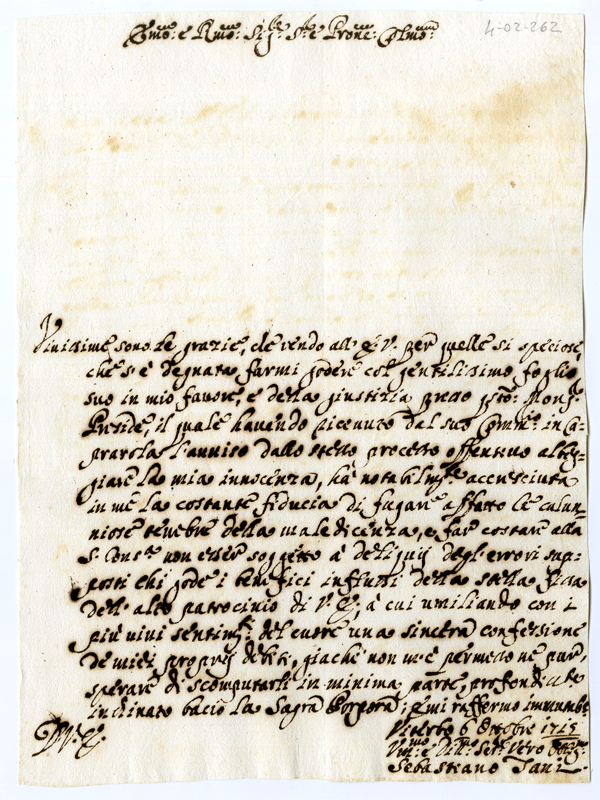 Emo: e Rmo: Sigr: Sre e Prone: Colmo:
4-02-262
Vivissime sono le grazie, che rendo all' E: V. per quelle si speciose,
che s'è degnata farmi godere col gentilissimo foglio
suo in mio favore, e della giustizia presso Monsr:
Preside, il quale havendo ricevuto dal suo Comm: in Ca-
prarola l'avviso dallo stesso processo offensivo alleg-
giare la mia innocenza, hà notabilmte accresciuta
in me la costante fiducia di fugare affatto le calun-
niose tenebre della maledicenza, e far costare alla
non esser soggetto à deliquij degl'errori sup-
posti chi gode i benefici influssi della stella fissa
dell'alto patrocinio di V. E., à cui umiliando con i
più vivi sentimti: del cuore una sincera confessione
de miei proprij debiti, giache non m'è permesso ne pur,
sperare di scomputarli in minima parte, profondamte
inclinato bacio la Sagra Porpora; e mi raffermo immutabe
Viterbo 6 Ottobre 1715
D. V. E:
Vmo: e Sere: Vero
Sebastiano Tani